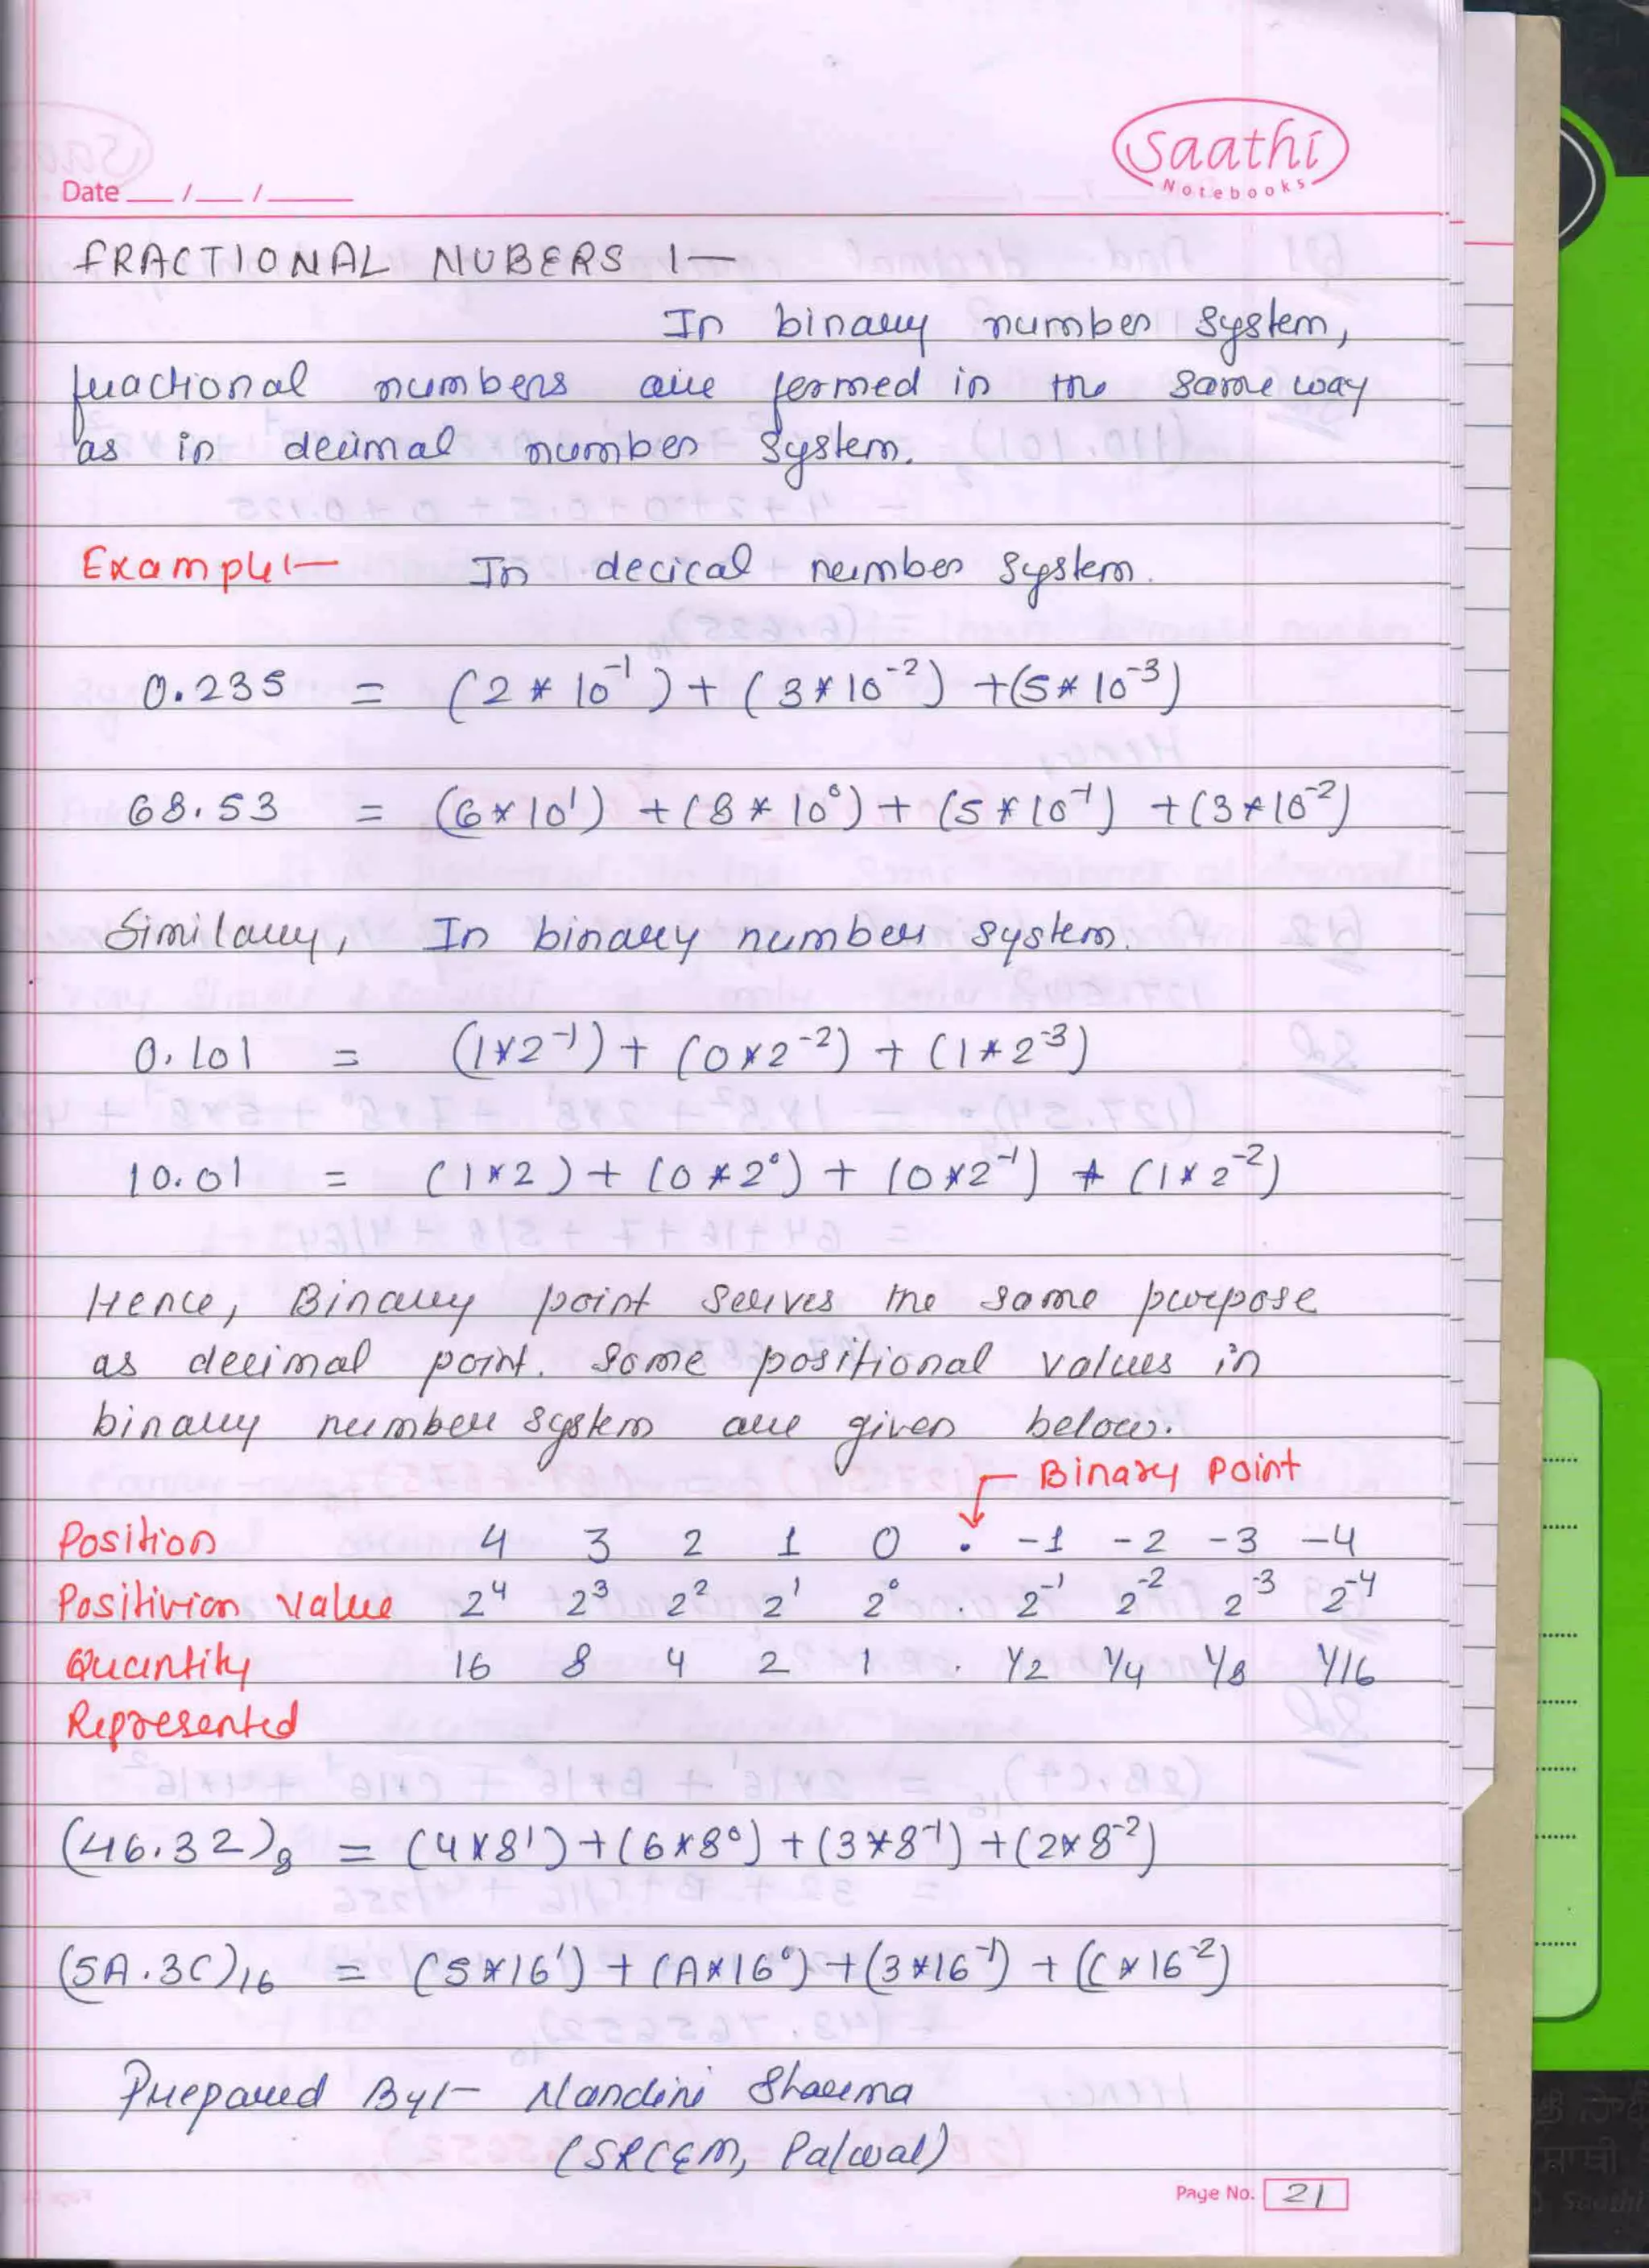 Saathi
Notebooks
Date ___/___/_____
FRACTIONAL NUBERS :-
In binary number system,
fractional numbers are formed in the same way
as in decimal number system.
Example:- In decical number system.
0.235 = (2*10⁻¹) + (3*10⁻²) + (5*10⁻³)
68.53 = (6*10¹) + (8*10⁰) + (5*10⁻¹) + (3*10⁻²)
Similary, In binary number system.
0.101 = (1*2⁻¹) + (0*2⁻²) + (1*2⁻³)
10.01 = (1*2) + (0*2⁰) + (0*2⁻¹) + (1*2⁻²)
Hence, Binary point serves the same purpose
as decimal point. Some positional values in
binary number system are given below.
Binary Point
Position 4 3 2 1 0 . -1 -2 -3 -4
Positivion Value 2⁴ 2³ 2² 2¹ 2⁰ . 2⁻¹ 2⁻² 2⁻³ 2⁻⁴
Quantity 16 8 4 2 1 . 1/2 1/4 1/8 1/16
Represented
(46.32)₈ = (4*8¹) + (6*8⁰) + (3*8⁻¹) + (2*8⁻²)
(5A.3C)₁₆ = (5*16¹) + (A*16⁰) + (3*16⁻¹) + (C*16⁻²)
Prepared By:- Nandini Sharma
(SRCEM, Palwal)
Page No. 21